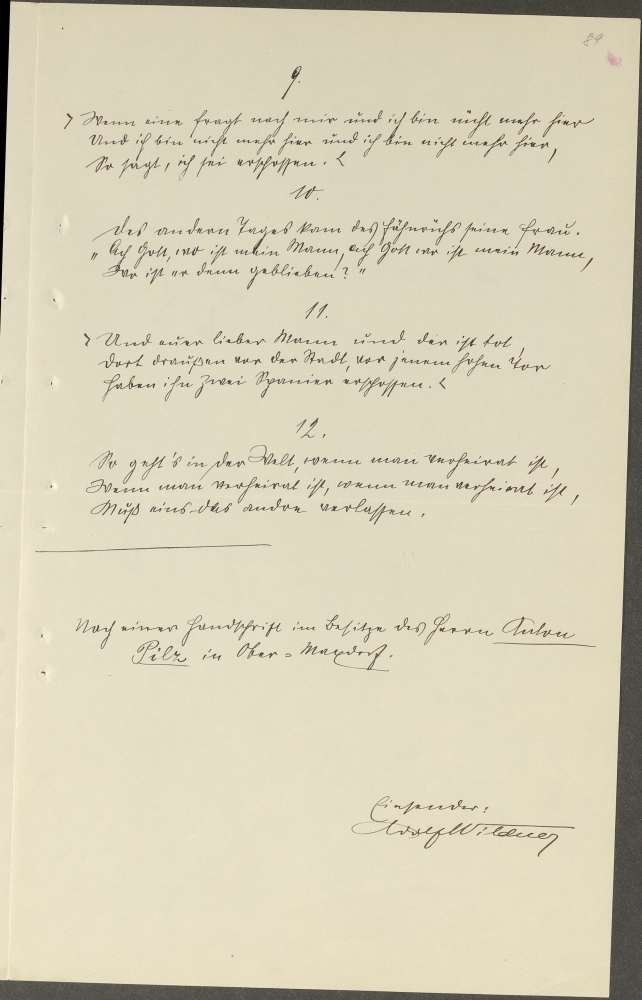 89
9.
> Wenn eine fragt nach mir und ich bin nicht mehr hier
Und ich bin nicht mehr hier und ich bin nicht mehr hier,
So sagt, ich sei erschossen. <
10.
Des andern Tages kam des Fähnrichs seine Frau.
„Ach Gott, wo ist mein Mann, ach Gott wo ist mein Mann,
Wo ist er denn geblieben?"
11.
> Und euer lieber Mann und der ist tot,
Dort draußen vor der Stadt, vor jenem hohen Tor
Haben ihn zwei Spanier erschossen. <
12.
So geht's in der Welt, wenn man verheirat ist,
Wenn man verheirat ist, wenn man verheirat ist,
Muß eins das andre verlassen.
Nach einer Handschrift im Besitze des Herrn Anton
Pilz in Ober-Maxdorf.
Einsender:
Adolf Wildner